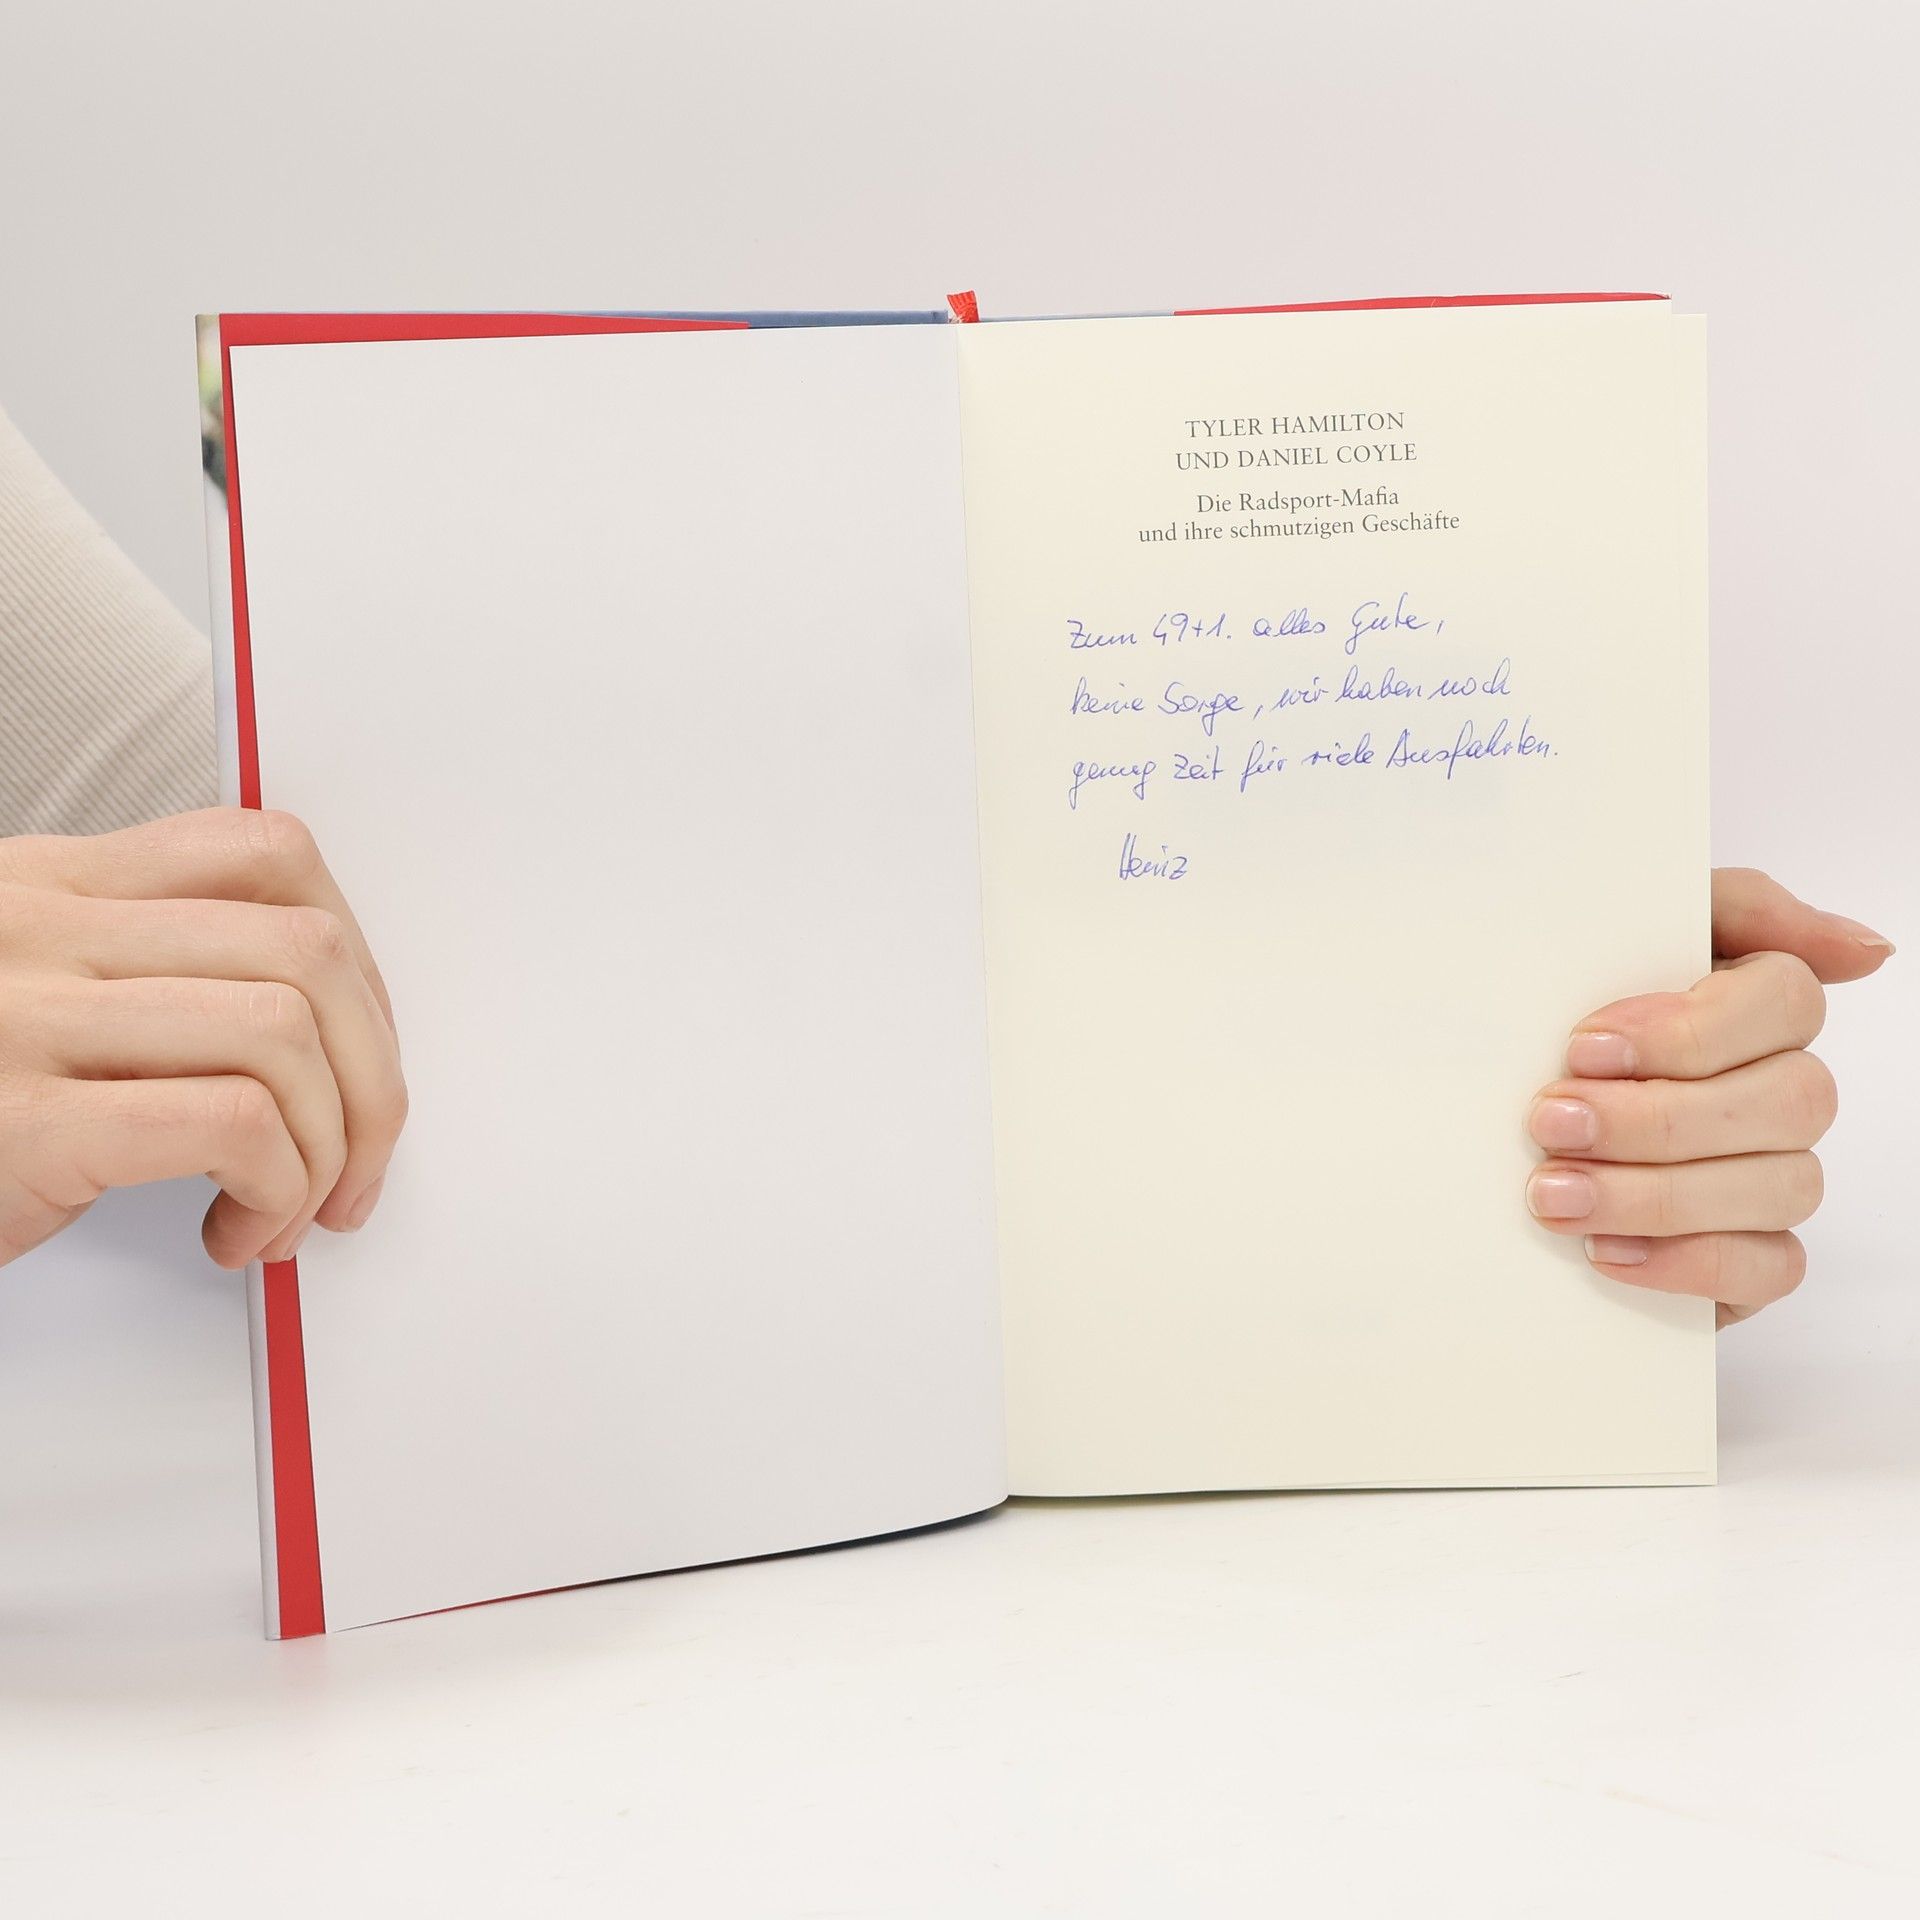 TYLER HAMILTON
UND DANIEL COYLE
Die Radsport-Mafia
und ihre schmutzigen Geschäfte
Zum 49+1. alles Gute,
keine Sorge, wir haben noch
genug Zeit für viele Ausfahrten.
Heinz